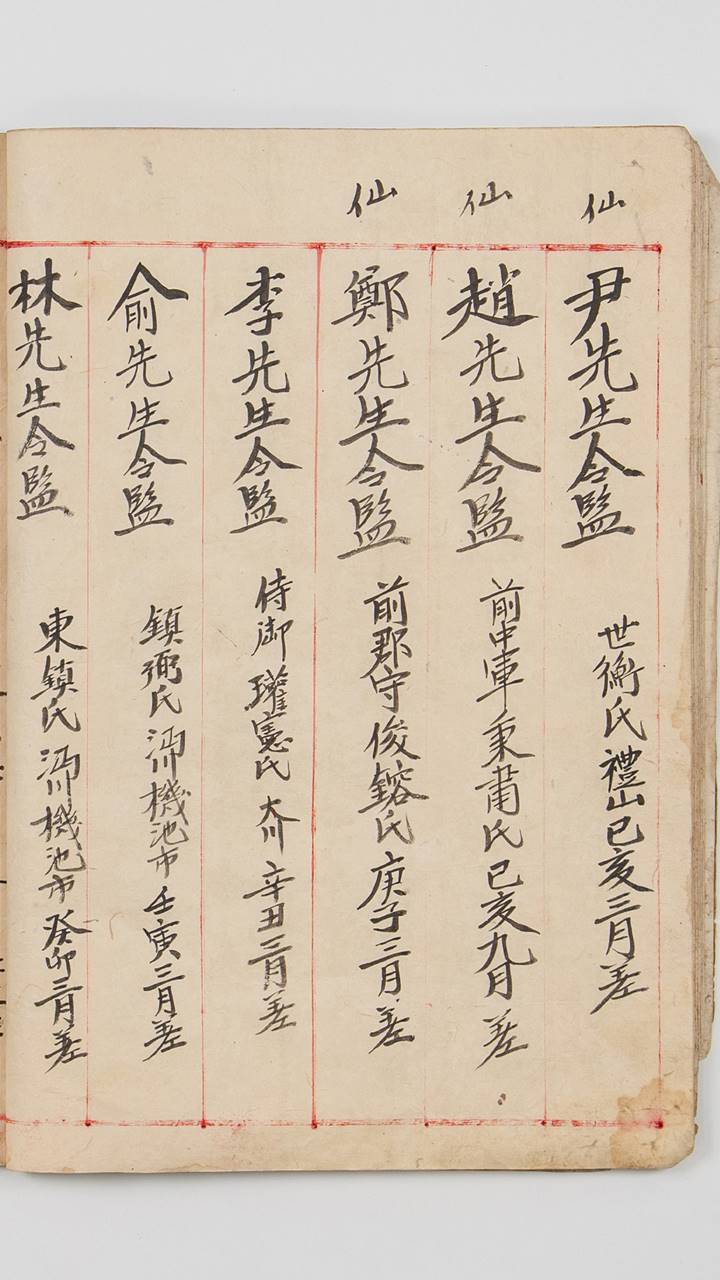 仙
尹先生令監 世衡氏 禮山 己亥三月差
仙
趙先生令監 前中軍秉肅氏 己亥九月差
仙
鄭先生令監 前郡守俊鎔氏 庚子三月差
李先生令監 侍御瓘憲氏 大川 辛丑三月差
俞先生令監 鎮弼氏 沔川機池市 壬寅三月差
林先生令監 東鎮氏 沔川機池市 癸卯三月差